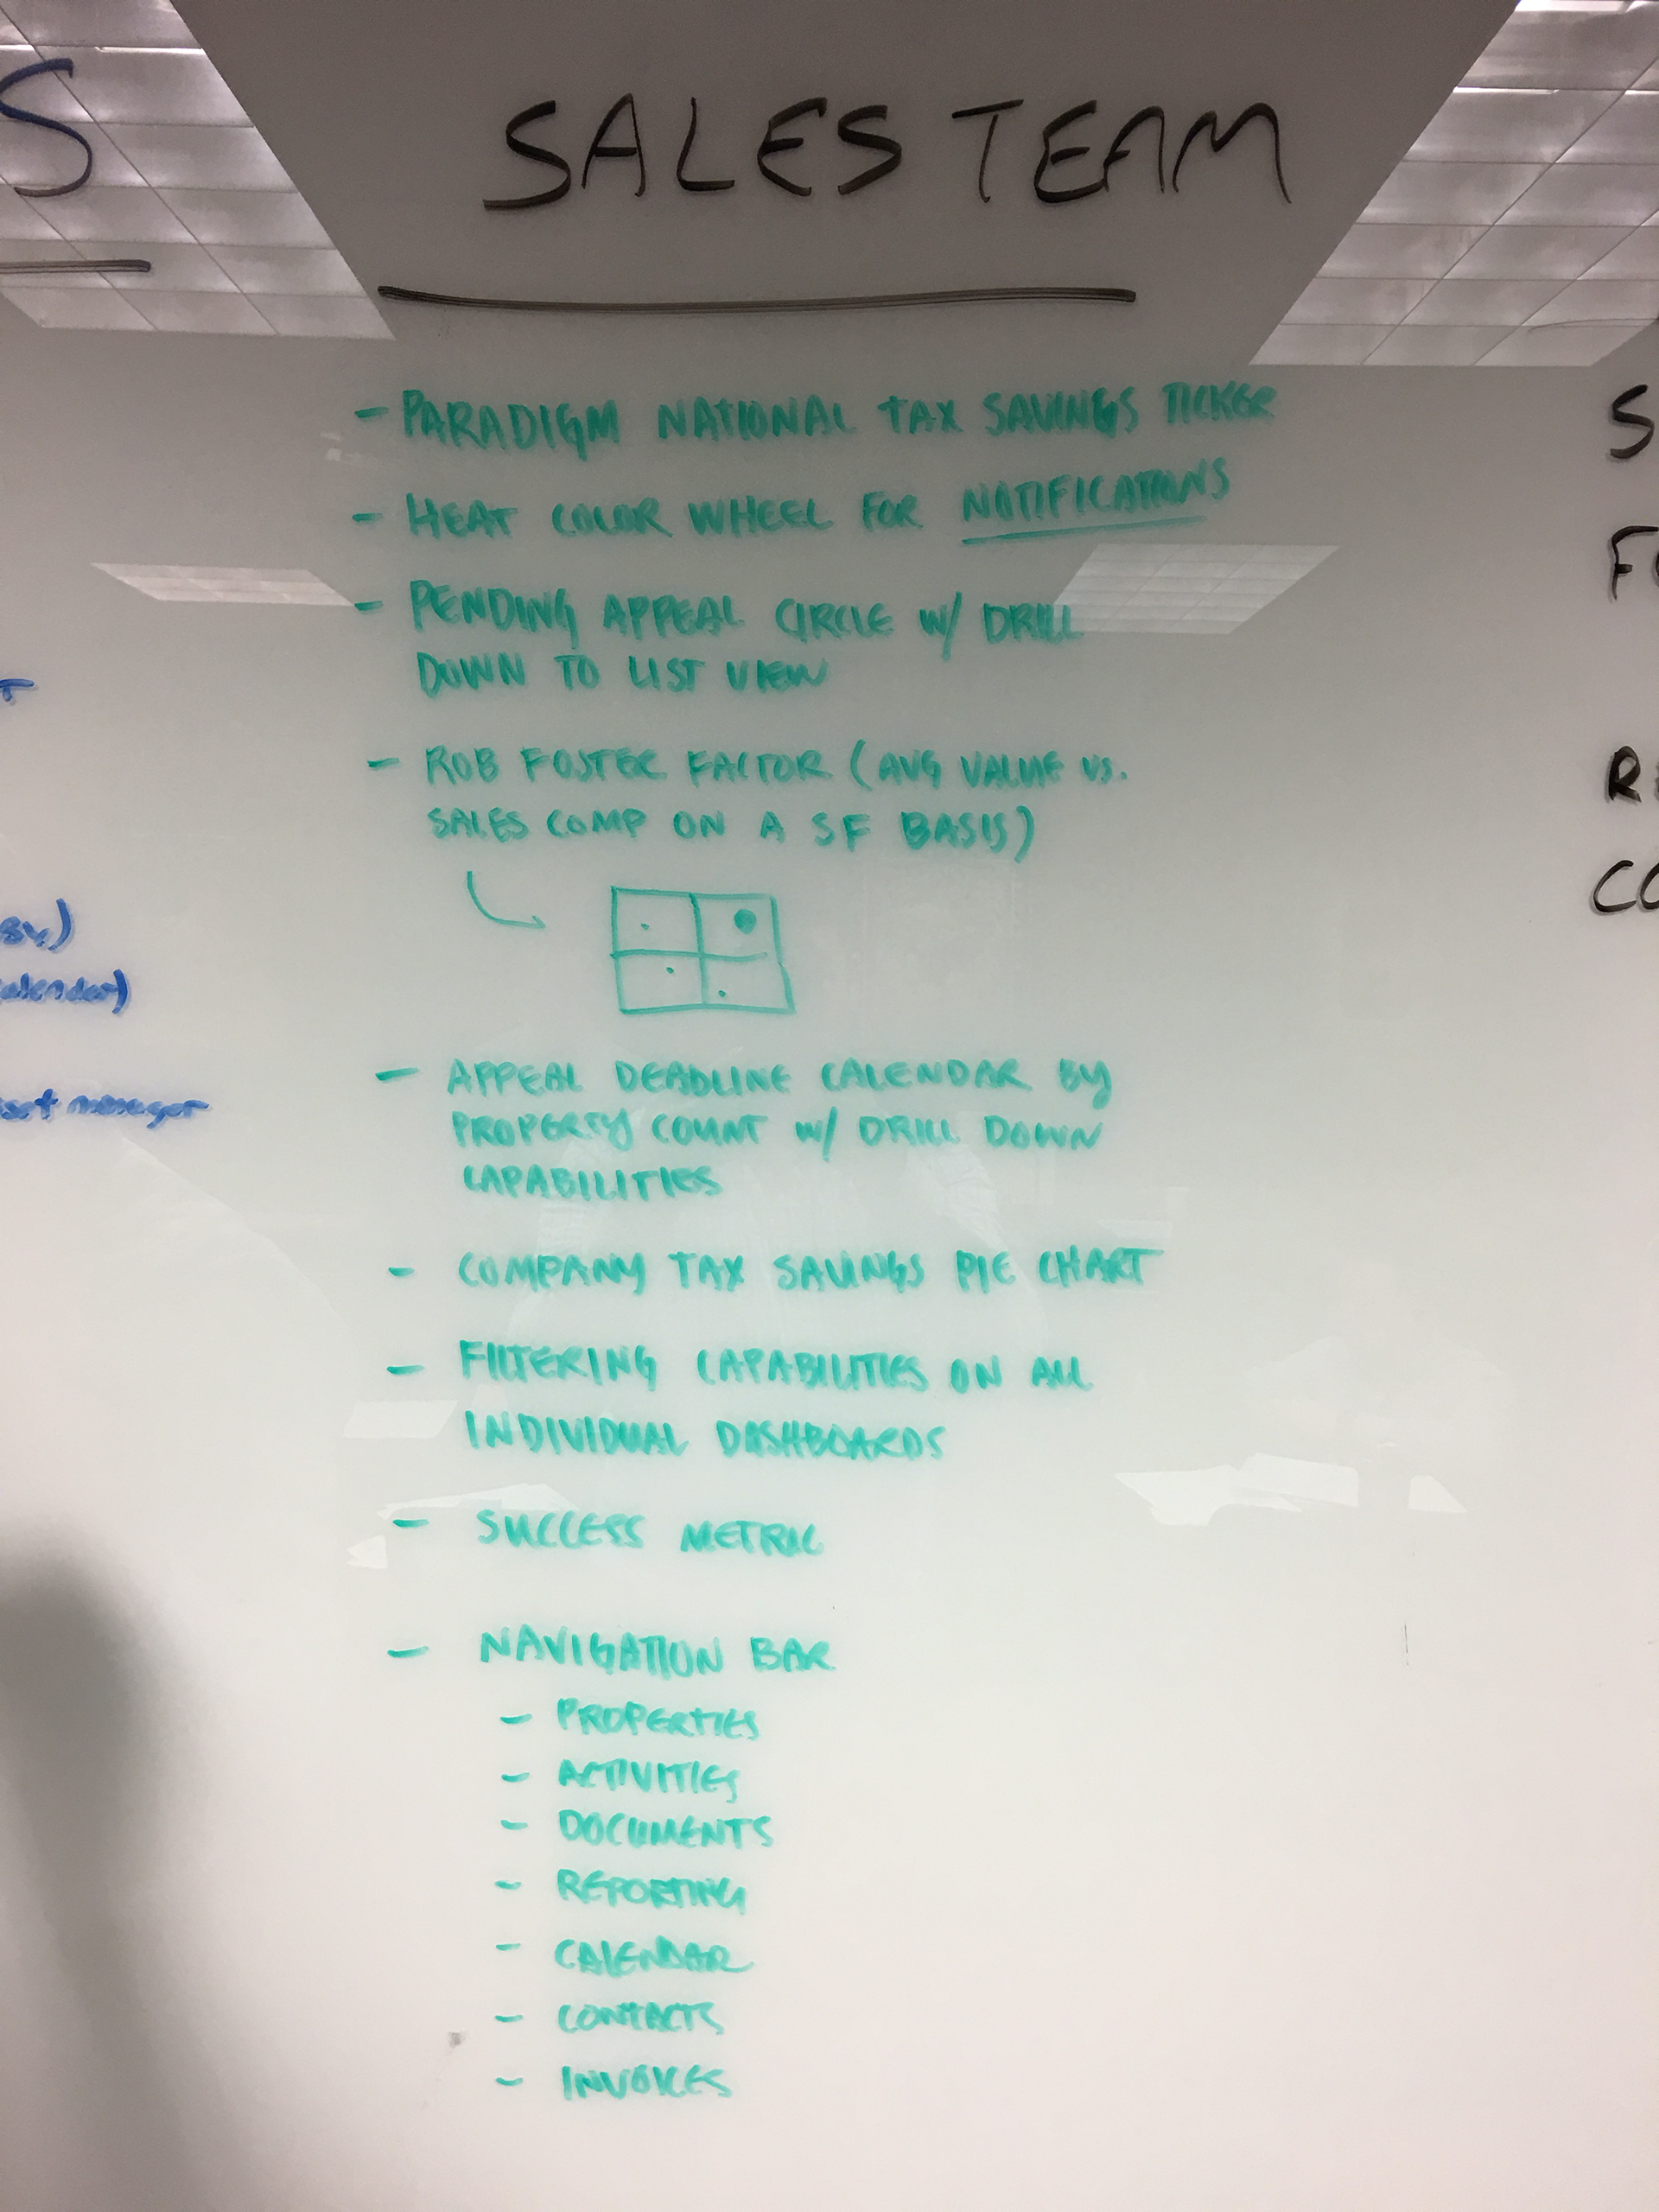 SALES TEAM
- PARADIGM NATIONAL TAX SAVINGS TICKER
- HEAT COLOR WHEEL FOR NOTIFICATIONS
- PENDING APPEAL CIRCLE W/ DRILL
DOWN TO LIST VIEW
- ROB FOSTER FACTOR (AVG VALUE VS.
SALES COMP ON A SF BASIS)
- APPEAL DEADLINE CALENDAR BY
PROPERTY COUNT W/ DRILL DOWN
CAPABILITIES
- COMPANY TAX SAVINGS PIE CHART
- FILTERING CAPABILITIES ON ALL
INDIVIDUAL DASHBOARDS
- SUCCESS METRIC
- NAVIGATION BAR
- PROPERTIES
- ACTIVITIES
- DOCUMENTS
- REPORTING
- CALENDAR
- CONTACTS
- INVOICES
S
T
alendar)
set manager
S
F
R
CO